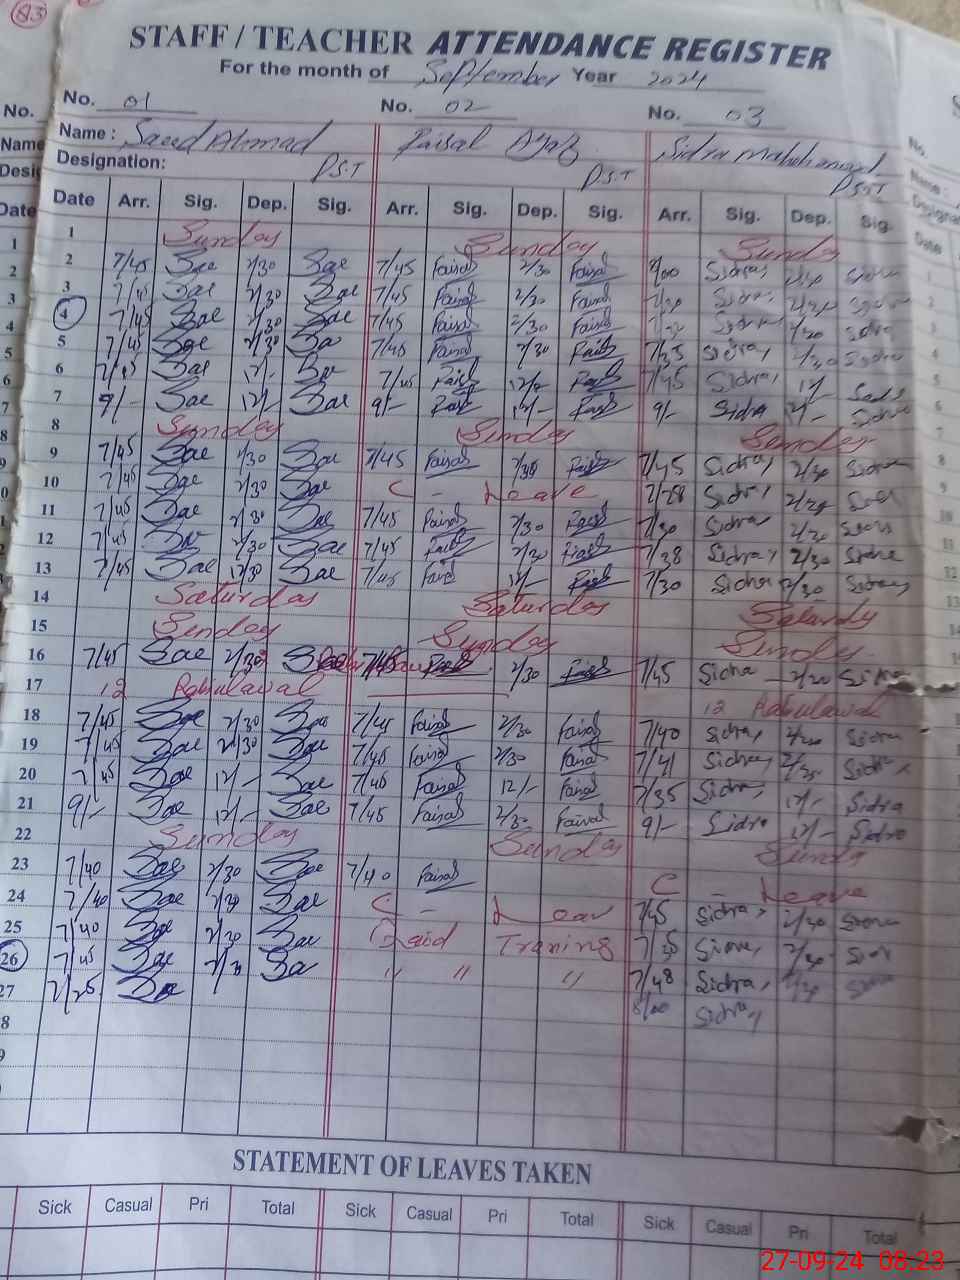 83
STAFF / TEACHER ATTENDANCE REGISTER
For the month of September Year 2024
No. 01 No. 02 No. 03
Name : Saeed Ahmad Faisal Ayaz Sidra
Designation: P.S.T P.S.T P.S.T
Date Arr. Sig. Dep. Sig. Arr. Sig. Dep. Sig. Arr. Sig. Dep. Sig.
1 Sunday Sunday Sunday
2 7/45 Sae 2/30 Sae 7/45 Faisal 2/30 Faisal 8/00 Sidra 2/30 Sidra
3 7/45 Sae 2/30 Sae 7/45 Faisal 2/30 Faisal Sidra
4 7/45 Sae 2/30 Sae 7/45 Faisal 2/30 Faisal Sidra
5 7/45 Sae 2/30 Sae 7/45 Faisal 2/30 Faisal 7/35 Sidra 2/30 Sidra
6 7/45 Sae 12/- Sae 7/45 Faisal Faisal 7/45 Sidra 12/-
7 9/- Sae 12/- Sae 9/- Faisal 12/- Faisal 9/- Sidra Sidra
8 Sunday Sunday Sunday
9 7/45 Sae 2/30 Sae 7/45 Faisal 2/30 Faisal 7/45 Sidra 2/30 Sidra
10 7/45 Sae 2/30 Sae C - Leave 7/28 Sidra
11 7/45 Sae 2/30 Sae 7/45 Faisal 2/30 Faisal 7/30 Sidra
12 7/45 Sae 2/30 Sae 7/45 Faisal 2/30 Faisal 7/38 Sidra 2/30 Sidra
13 7/45 Sae Sae 7/45 Faisal 12/- Faisal 7/30 Sidra Sidra
14 Saturday Saturday Saturday
15 Sunday Sunday Sunday
16 7/45 Sae 2/30 7/45 2/30 Faisal 7/45 Sidra Sidra
17 12 Rabiulawal 12 Rabiulawal
18 7/45 Sae 2/30 Sae 7/45 Faisal 2/30 Faisal 7/40 Sidra Sidra
19 7/45 Sae 2/30 Sae 7/45 Faisal 2/30 Faisal 7/41 Sidra Sidra
20 7/45 Sae 12/- Sae 7/45 Faisal 12/- Faisal 7/35 Sidra 12/- Sidra
21 9/- Sae 12/- Sae 7/45 Faisal 2/30 Faisal 9/- Sidra 12/- Sidra
22 Sunday Sunday Sunday
23 7/40 Sae 2/30 Sae 7/40 Faisal C - Leave
24 7/40 Sae 2/30 Sae C - Leav 7/45 Sidra 2/30 Sidra
25 7/40 Sae 2/30 Sae Traning Sidra
26 7/45 Sae Sae " " " 7/48 Sidra
27 7/25 Sae 8/00 Sidra
8
9
STATEMENT OF LEAVES TAKEN
Sick Casual Pri Total Sick Casual Pri Total Sick Casual Pri Total
27-09-24 08:23